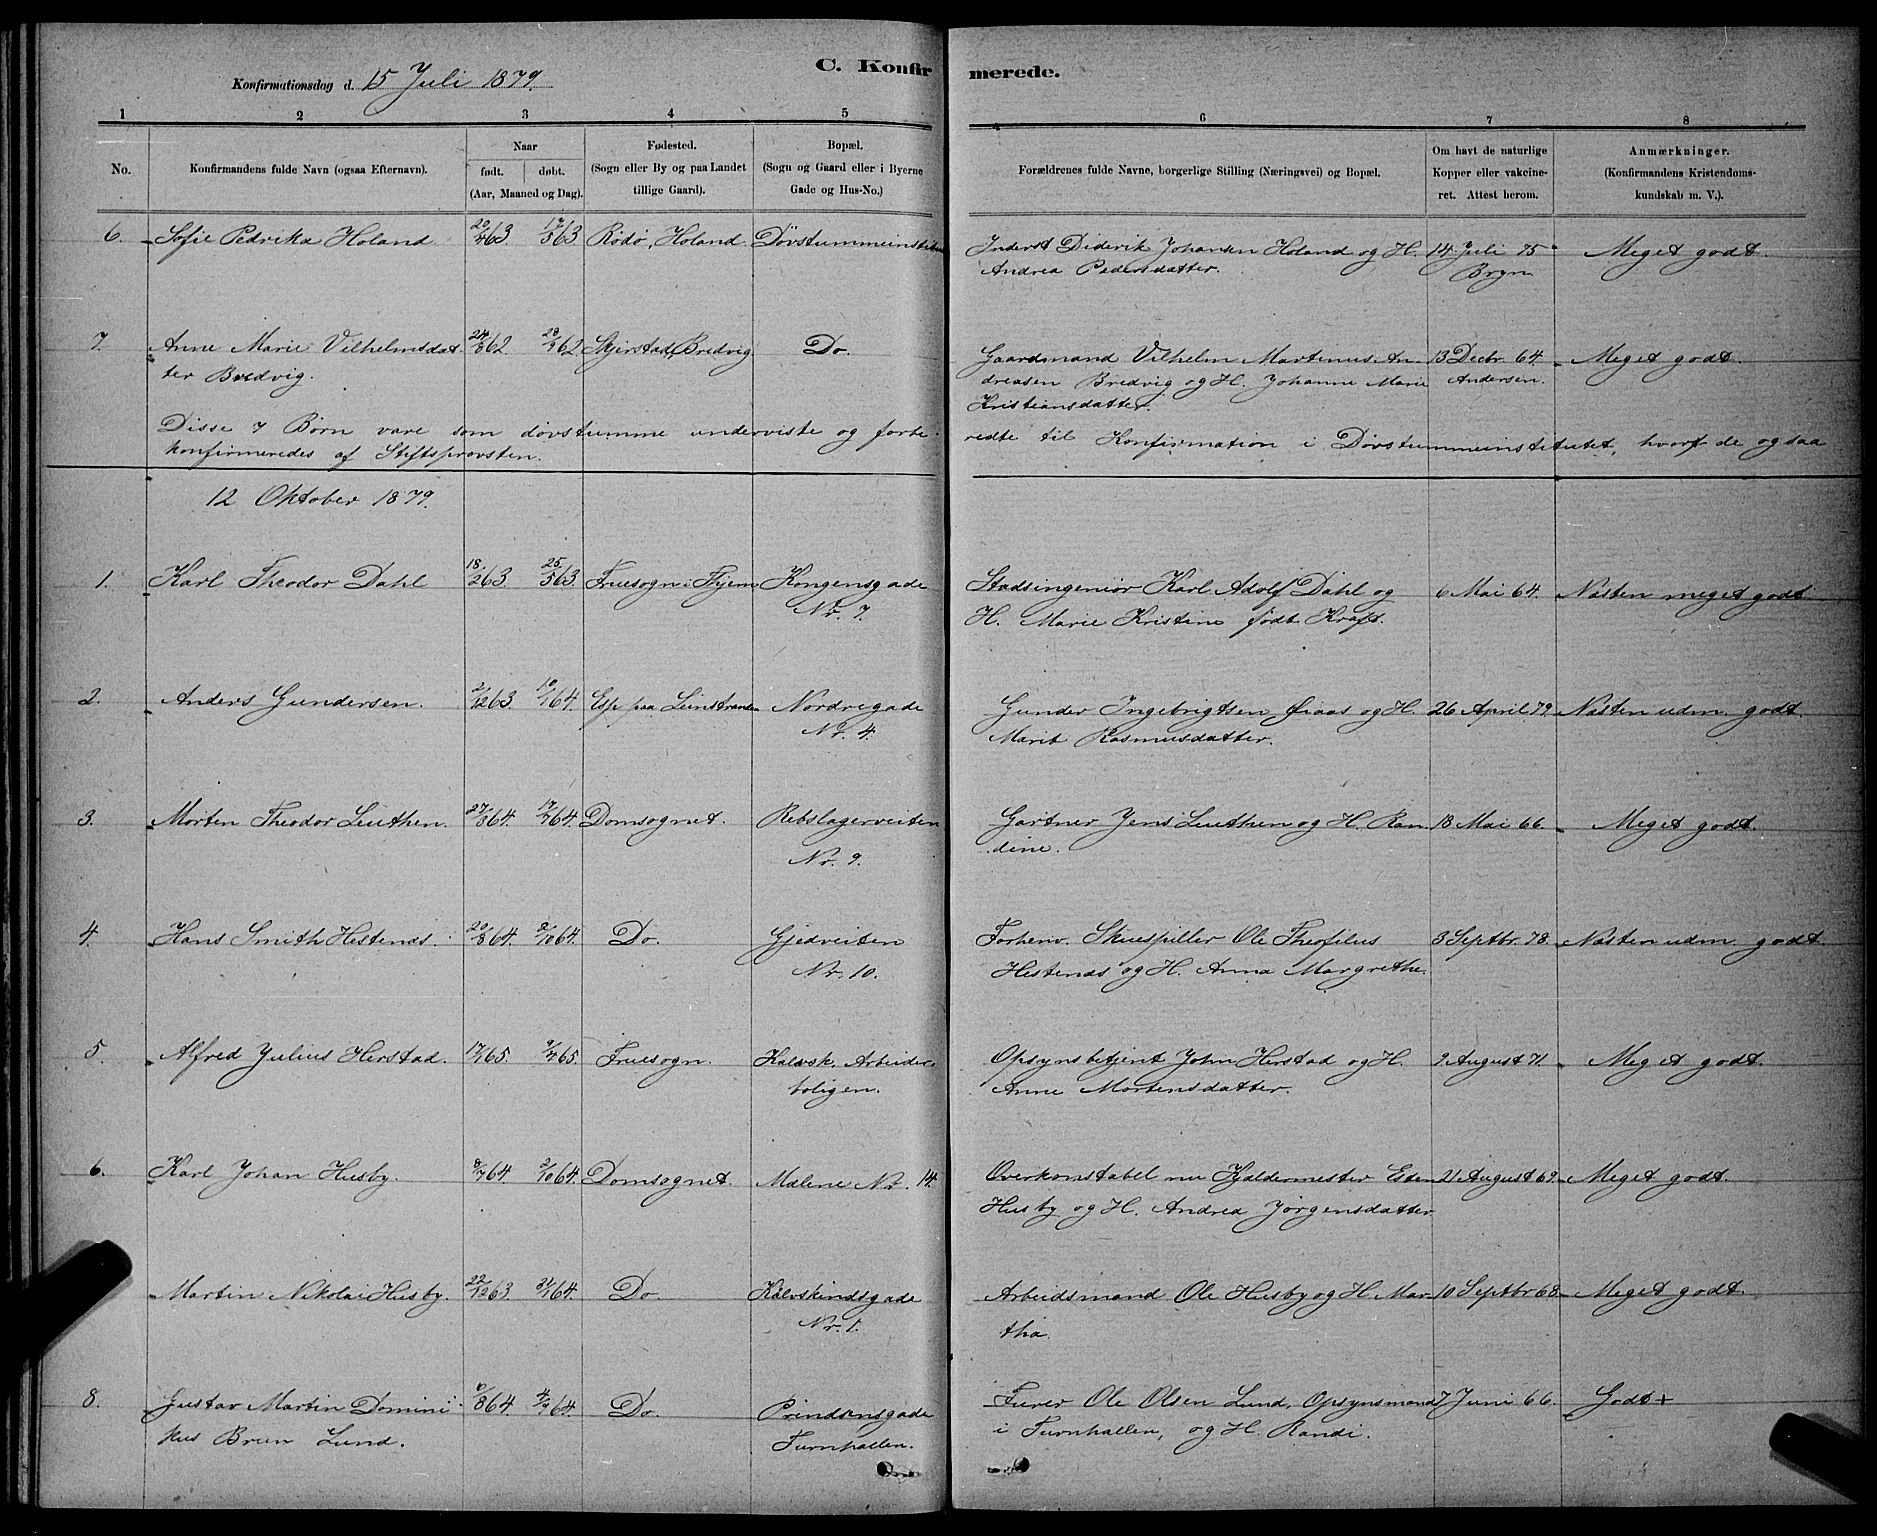 C. Konfirmerede.
Konfirmationsdag d. 15 Juli 1879.
1 2 3 4 5 6 7 8
No. Konfirmandens fulde Navn (ogsaa Efternavn). Naar født. døbt. (Aar, Maaned og Dag). Fødested. (Sogn eller By og paa Landet tillige Gaard). Bopæl. (Sogn og Gaard eller i Byerne Gade og Hus-No.) Forældrenes fulde Navne, borgerlige Stilling (Næringsvei) og Bopæl. Om havt de naturlige Kopper eller vakcineret. Attest herom. Anmærkninger. (Konfirmandens Kristendomskundskab m. V.).
6. Sofie Pedrika Holand 20/4 63 17/5 63 Rödö, Holand Døvstummeinstitut Inderst Diderik Johansen Holand og H. 14 Juli 75 Meget godt.
Andrea Pedersdatter. Bryn
7. Anne Marie Vilhelmsdat 24/8 62 28/9 62 Skjerstad, Bredvig Do. Gaardmand Vilhelm Martenus An 13 Decbr. 64. Meget godt.
ter Bredvig. dreasen Bredvig og H. Johanne Marie Andersen.
Kristiansdatter.
Disse 7 Børn vare som døvstumme underviste og forbe redte til Konfirmation i Døvstummeinstitutet, hvorf de ogsaa
konfirmeredes af Stiftsprovsten.
12 Oktober 1879.
1. Karl Theodor Dahl 18/2 63. 25/5 63. Fruesogn i Thjem Kongensgade Stadsingeniør Karl Adolf Dahl og 6 Mai 64. Næsten meget godt
Nr. 7. H. Marie Kristine født Kraft.
2. Anders Gundersen. 2/12 63. 10/1 64. Esp paa Leinstranden Nordregade Gunder Ingebrigtsen Øiaas og H. 26 April 79. Næsten udm. godt.
Nr. 4. Marit Rasmusdatter.
3. Morten Theodor Leuthen. 27/3 64. 17/7 64. Domsognet. Rebslagerveiten Gartner Jens Leuthen og H. Ran 18 Mai 66. Meget godt.
Nr. 9. dine.
4. Hans Smith Hestenæs. 20/8 64. 2/10 64. Do. Gjedveiten Forhenv. Skuespiller Ole Theofilus 3 Septbr. 78. Næsten udm. godt.
Nr. 10. Hestenæs og H. Anna Margrethe.
5. Alfred Julius Herstad. 17/1 65. 9/4 65. Fruesogn. Kalvsk. Arbeider Opsynsbetjent John Herstad og H. 9 August 71. Meget godt.
boligen. Anne Mortensdatter.
6. Karl Johan Husby. 8/7 64. 2/10 64. Domsognet. Mælene Nr. 14. Overkonstabel nu Kjeldermester Esten 21 August 69. Meget godt.
Husby og H. Andrea Jørgensdatter
Martin Nikolai Husby. 22/12 63. 21/1 64. Do. Kalvskindsgade Arbeidsmand Ole Husby og H. Mar 10 Septbr 68. Meget godt.
Nr. 1. tha.
8. Gustav Martin Domini 6/8 64. 4/9 64. Do. Prindsensgade Furer Ole Olsen Lund, Opsynsmand 7 Juni 66. Godt +
kus Brun Lund. Turnhallen. i Turnhallen, og H. Randi.